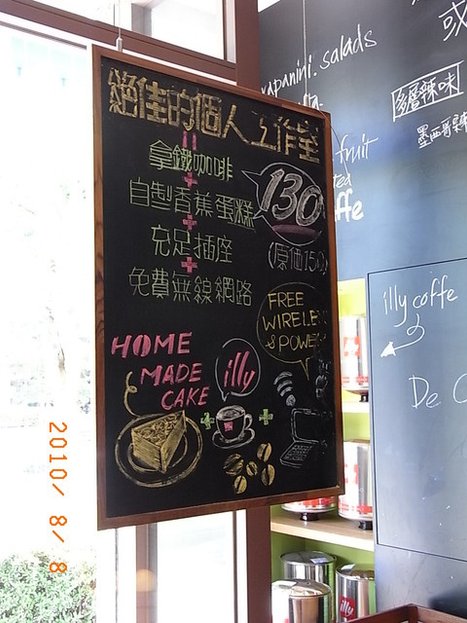 絕佳的個人工作室
=
拿鐵咖啡
+
自製香蕉蛋糕
+
充足插座
+
免費無線網路
130
(原價150)
FREE
WIRELESS
&POWER
HOME
MADE
CAKE
illy
+ +
panini. salads
或
多層辣味
fruit
illy coffe
De
illy
2010/ 8/8